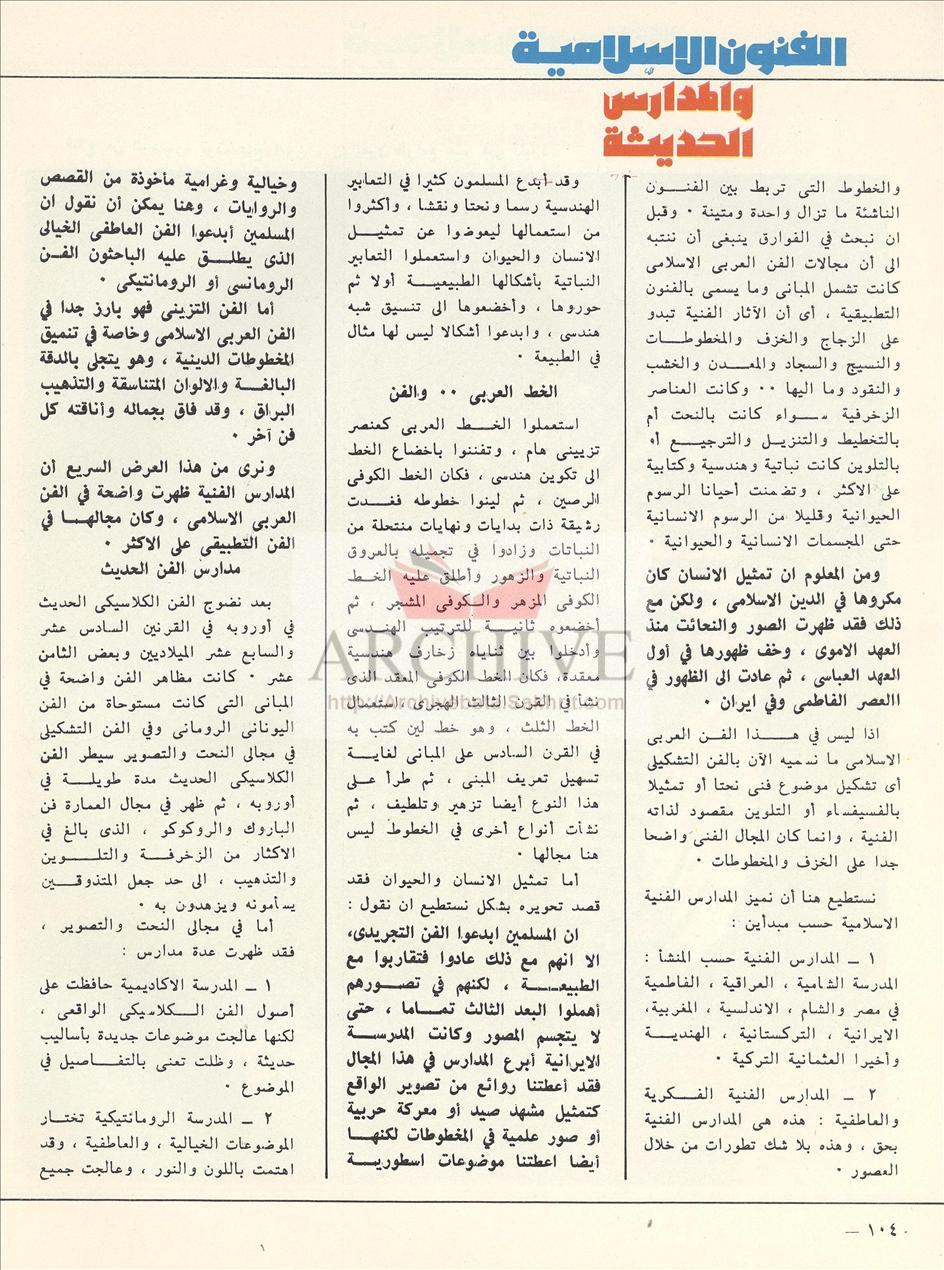 الفنون الإسلامية
والمدارس
الحديثة
والخطوط التى تربط بين الفنــون
الناشئة ما تزال واحدة ومتينة ٠ وقبل
ان نبحث في الفوارق ينبغى أن ننتبه
الى أن مجالات الفن العربى الاسلامى
كانت تشمل المبانى وما يسمى بالفنون
التطبيقية ، أى أن الآثار الفنية تبدو
على الزجاج والخزف والمخطوطــات
والنسيج والسجاد والمعــدن والخشب
والنقود وما اليها ٠٠ وكانت العناصر
الزخرفية سـواء كانت بالنحت أم
بالتخطيط والتنزيـل والترجيـع أم
بالتلوين كانت نباتية وهندسية وكتابية
على الاكثر ، وتضمنت أحيانا الرسوم
الحيوانية وقليلا من الرسوم الانسانية
حتى المجسمات الانسانية والحيوانية ٠
ومن المعلوم ان تمثيل الانسان كان
مكروها في الدين الاسلامى ، ولكن مع
ذلك فقد ظهرت الصور والنحائت منذ
العهد الاموى ، وخف ظهورها في أول
العهد العباسى ، ثم عادت الى الظهور في
االعصر الفاطمى وفي ايران ٠
اذا ليس في هــذا الفـن العربى
الاسلامى ما نسميه الآن بالفن التشكيلى
أى تشكيل موضوع فنى نحتا أو تمثيلا
بالفسيفساء أو التلوين مقصود لذاته
الفنية ، وانما كان المجال الفنى واضحا
جدا على الخزف والمخطوطات ٠
نستطيع هنا أن نميز المدارس الفنية
الاسلامية حسب مبدأين :
١ ــ المدارس الفنية حسب المنشأ :
المدرسة الشامية ، العراقية ، الفاطمية
في مصر والشام ، الاندلسية ، المغربية،
الايرانية ، التركستانية ، الهنديـة
وأخيرا العثمانية التركية ٠
٢ ــ المدارس الفنية الفـكرية
والعاطفية : هذه هى المدارس الفنية
بحق ، وهذه بلا شك تطورات من خلال
العصور ٠
وقد أبدع المسلمون كثيرا في التعابير
الهندسية رسما ونحتا ونقشا ، وأكثروا
من استعمالها ليعوضوا عن تمثيــل
الانسان والحيوان واستعملوا التعابير
النباتية بأشكالها الطبيعيــة أولا ثم
حوروها ، وأخضعوها الى تنسيق شبه
هندسى ، وابدعوا أشكالا ليس لها مثال
في الطبيعة ٠
الخط العربى ٠٠ والفن
استعملوا الخـط العربى كعنصر
تزيينى هام ، وتفننوا بأخضاع الخط
الى تكوين هندسى ، فكان الخط الكوفى
الرصين ، ثم لينوا خطوطه فغــدت
رشيقة ذات بدايات ونهايات منتحلة من
النباتات وزادوا في تجميله بالعروق
النباتية والزهور وأطلق عليه الخـط
الكوفى المزهر والـكوفى المشجر ، ثم
أخضعوه ثانيــة للترتيب الهندسى
وأدخلوا بين ثناياه زخارف هندسية
معقدة، فكان الخط الكوفى المعقد الذى
نشأ في القرن الثالث الهجرى ،استعمال
الخط الثلث ، وهو خط لين كتب به
في القرن السادس على المبانى لغاية
تسهيل تعريف المبنى ، ثم طرأ علـى
هذا النوع أيضا تزهير وتلطيف ، ثم
نشأت أنواع أخرى في الخطوط ليس
هنا مجالها ٠
أما تمثيل الانسان والحيوان فقد
قصد تحويره بشكل نستطيع ان نقول :
ان المسلمين ابدعوا الفن التجريدى،
الا انهم مع ذلك عادوا فتقاربوا مع
الطبيعـة ، لكنهم في تصـورهم
أهملوا البعد الثالث تمـاما ، حتى
لا يتجسم المصور وكانت المدرسـة
الايرانية أبرع المدارس في هذا المجال
فقد أعطتنا روائع من تصوير الواقع
كتمثيل مشهد صيد أو معركة حربية
أو صور علمية في المخطوطات لكنهـا
أيضا اعطتنا موضوعات اسطوريـة
وخيالية وغرامية مأخوذة من القصص
والروايات ، وهنا يمكن أن نقول ان
المسلمين أبدعوا الفن العاطفى الخيالى
الذى يطلــق عليه الباحثون الفـن
الرومانسى أو الرومانتيكى ٠
أما الفن التزينى فهو بارز جدا في
الفن العربى الاسلامى وخاصة في تنميق
المخطوطات الدينية ، وهو يتجلى بالدقة
البالغـة والالوان المتناسقة والتذهيب
البراق ، وقد فاق بجماله وأناقته كل
فن آخر ٠
ونرى من هذا العرض السريع أن
المدارس الفنية ظهرت واضحة في الفن
العربى الاسلامى ، وكان مجالهـا في
الفن التطبيقى على الاكثر ٠
مدارس الفن الحديث
بعد نضوج الفن الكلاسيكى الحديث
في أوروبه في القرنين السادس عشر
والسابع عشر الميلاديين وبعض الثامن
عشر ٠ كانت مظاهر الفن واضحة في
المبانى التى كانت مستوحاة من الفن
اليونانى الرومانى وفي الفن التشكيلى
في مجالى النحت والتصوير سيطر الفن
الكلاسيكى الحديث مدة طويلـة في
أوروبه ، ثم ظهر في مجال العمارة فن
الباروك والروكوكو ، الذى بالغ في
الاكثار من الزخرفـة والتلـوين
والتذهيب ، الى حد جعل المتذوقـين
يسأمونه ويزهدون به ٠
أما في مجالى النحت والتصوير ،
فقد ظهرت عدة مدارس :
١ ــ المدرسة الاكاديمية حافظت على
أصول الفن الـكلاسيكى الواقعى ،
لكنها عالجت موضوعات جديدة بأساليب
حديثة ، وظلت تعنى بالتفـاصيل في
الموضوع ٠
٢ ــ المدرسة الرومانتيكية تختـار
الموضوعات الخيالية ، والعاطفية ، وقد
اهتمت باللون والنور ، وعالجت جميع
ARCHIVE
http://Archivebeta.Sakhrit.com
١٠٤ ــ